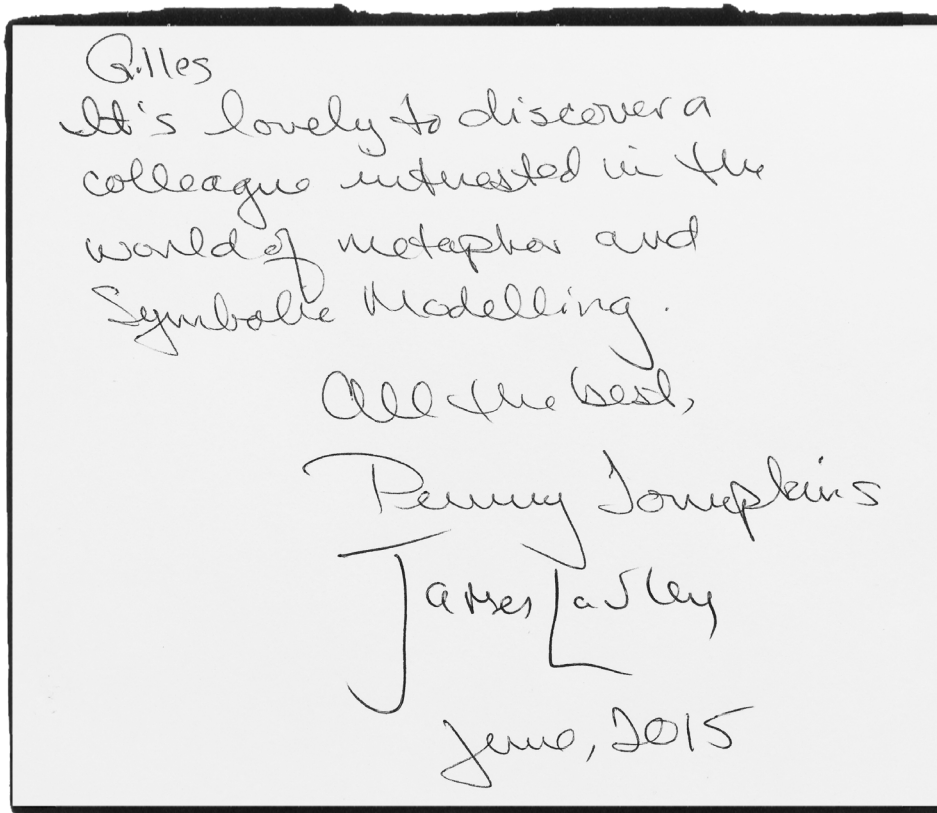 Gilles
It's lovely to discover a
colleague interested in the
world of metaphor and
Symbolic Modelling.
All the best,
Penny Tompkins
James Lawley
June, 2015